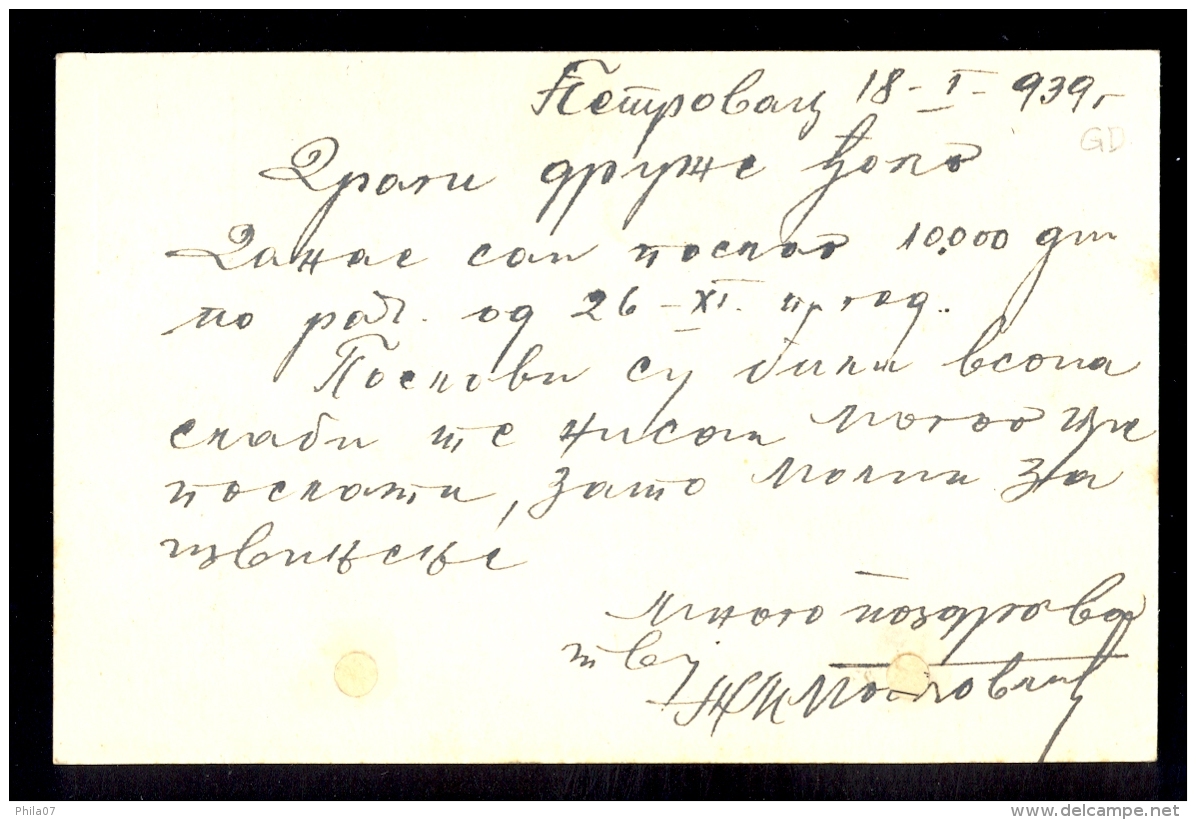 Петровац 18-I-939г
GD
Драги друже
Данас сам послао 10.000 дин
по рач. од 26-XI. пр. год.
Послови су били веома
слаби те нисам могао пре
послати, зато молим за
извињење
Много поздрава
твој
Phila07
delcampe.net